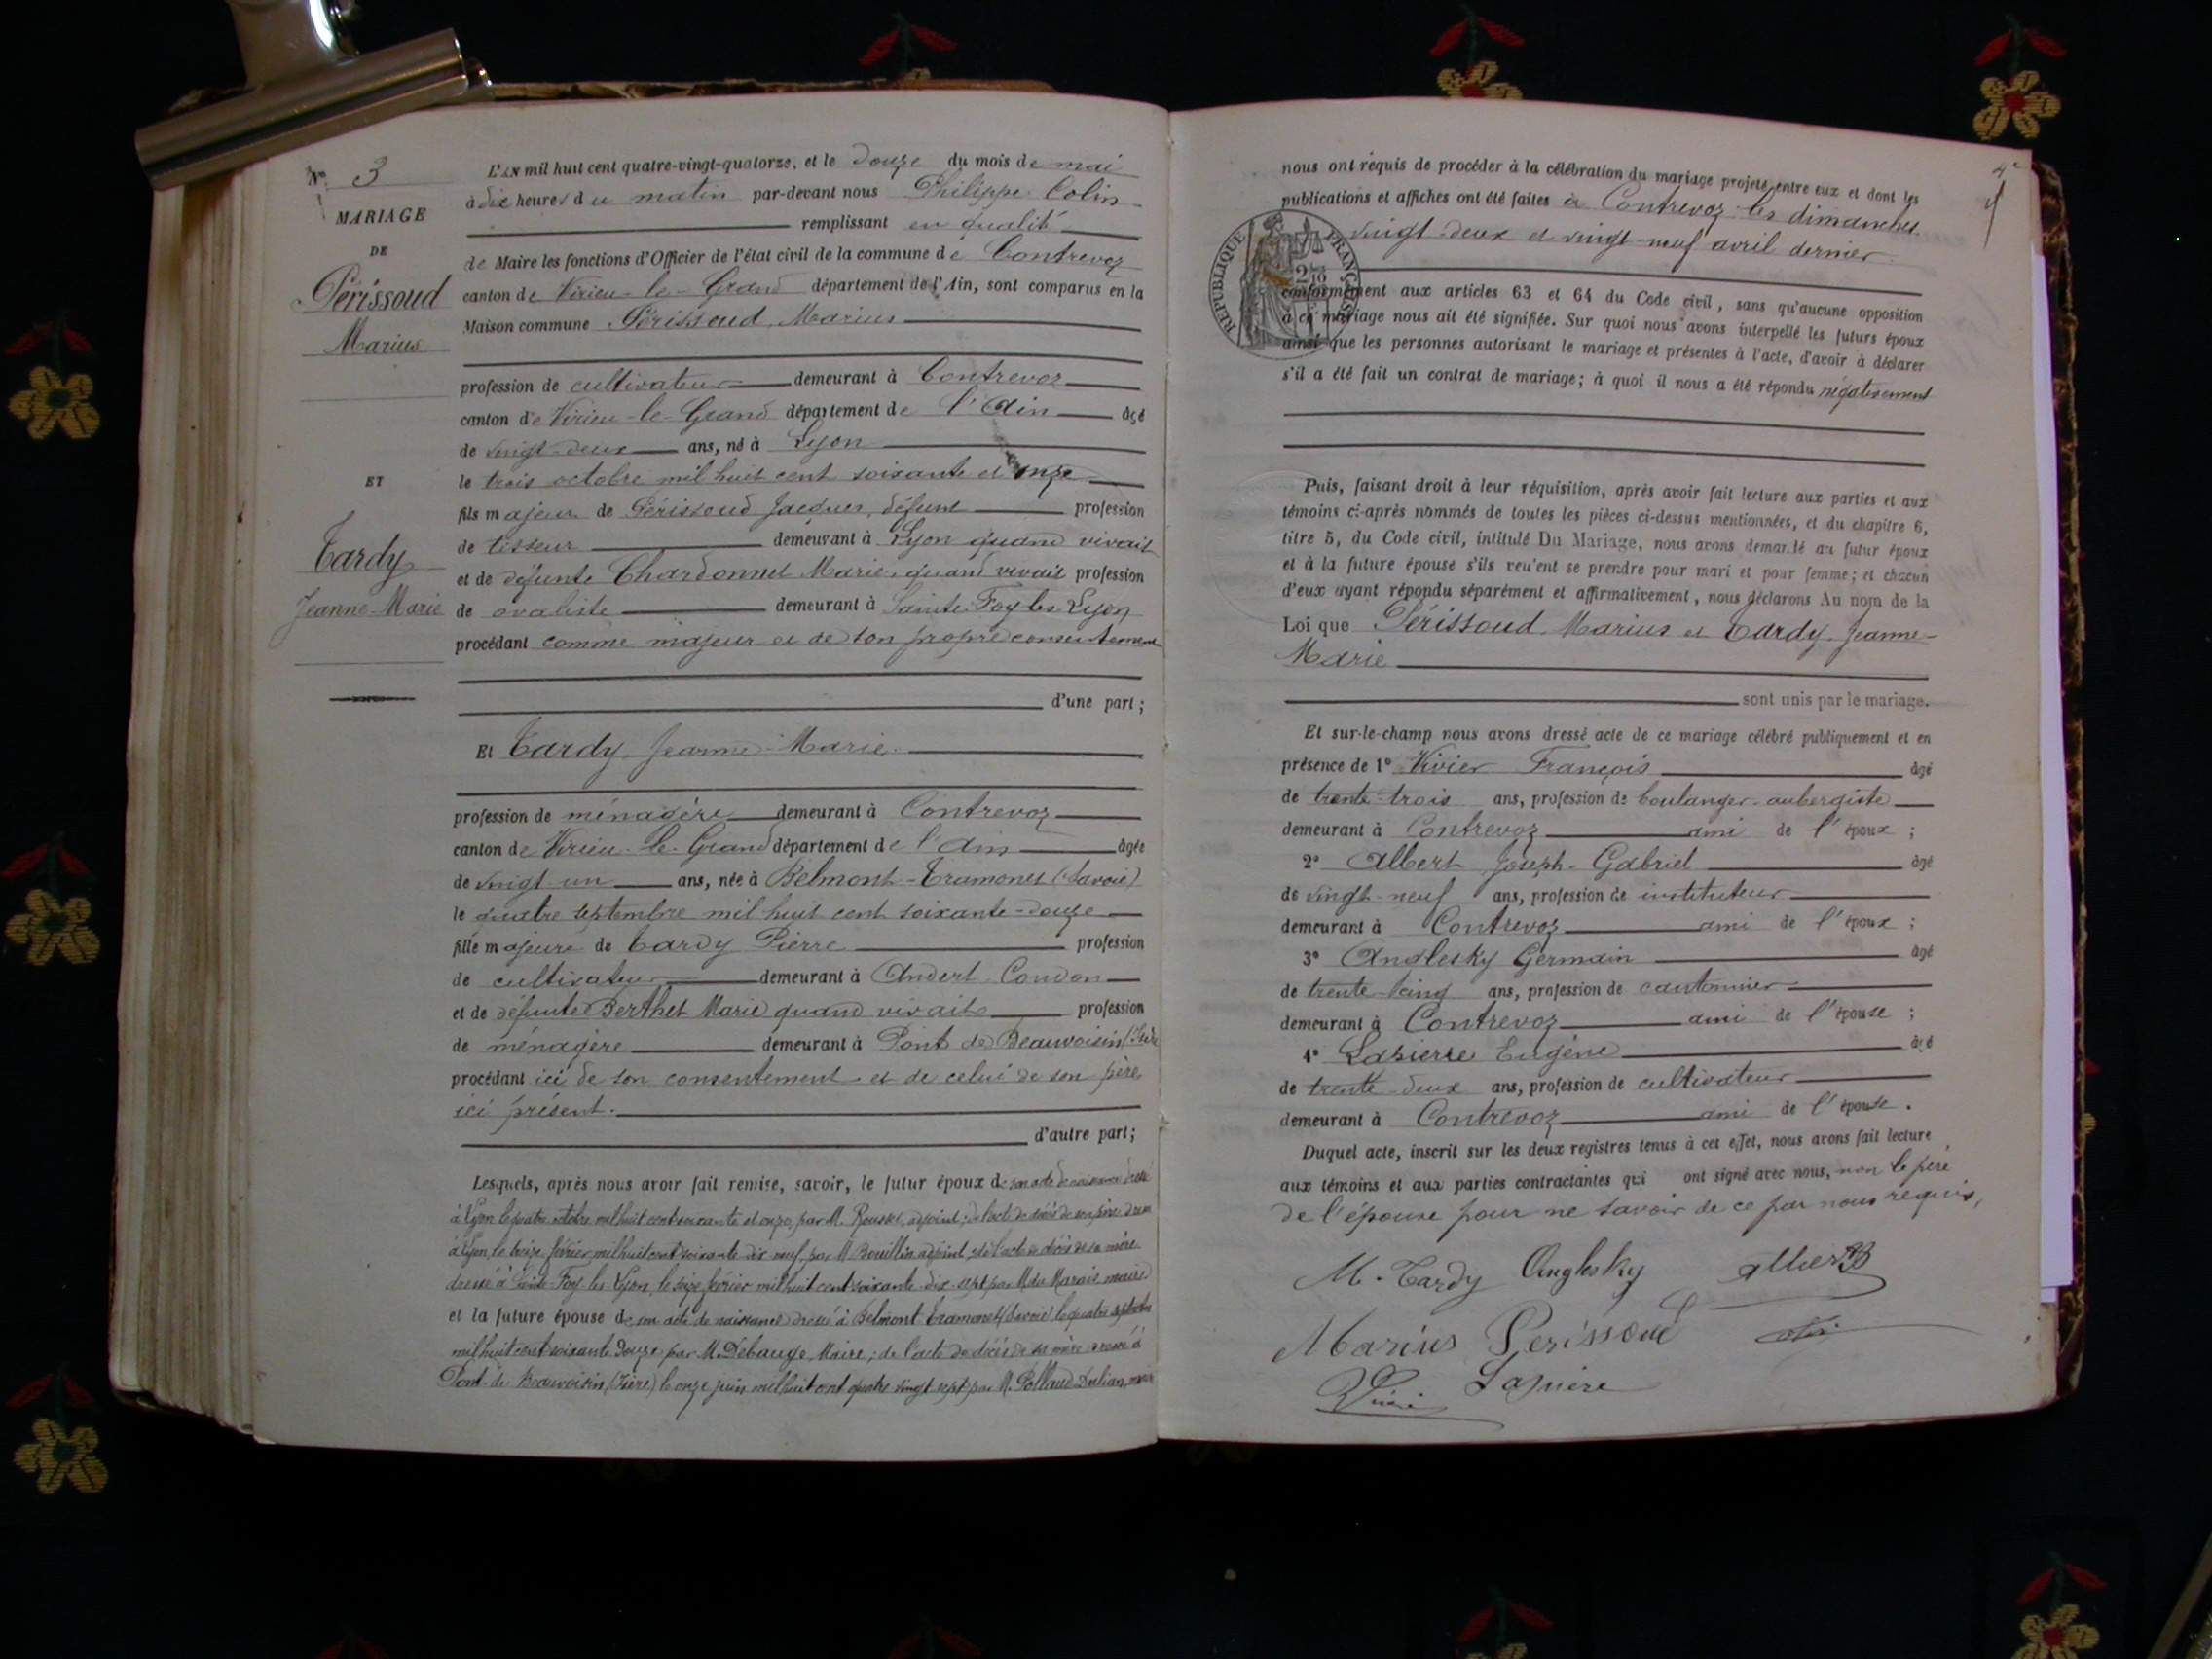 N° 3
MARIAGE
DE
Périssoud
Marius
ET
Tardy
Jeanne-Marie
L'AN mil huit cent quatre-vingt-quatorze, et le douze du mois de mai
à dix heures du matin par-devant nous Philippe Colin
remplissant en qualité
de Maire les fonctions d'Officier de l'état civil de la commune de Contrevoz
canton de Virieu-le-Grand département de l'Ain, sont comparus en la
Maison commune Périssoud Marius
profession de cultivateur demeurant à Contrevoz
canton de Virieu-le-Grand département de l'Ain âgé
de vingt-deux ans, né à Lyon
le trois octobre mil huit cent soixante et onze
fils majeur de Périssoud Jacques, défunt profession
de tisseur demeurant à Lyon quand vivait
et de défunte Chardonnet Marie, quand vivait profession
de ovaliste demeurant à Sainte Foy les Lyon
procédant comme majeur et de son propre consentement
d'une part;
Et Tardy Jeanne-Marie
profession de ménagère demeurant à Contrevoz
canton de Virieu-le-Grand département de l'Ain âgée
de vingt-un ans, née à Belmont-Tramonet (Savoie)
le quatre septembre mil huit cent soixante-douze
fille majeure de Tardy Pierre profession
de cultivateur demeurant à Andert-Condon
et de défunte Berthet Marie quand vivait profession
de ménagère demeurant à Pont de Beauvoisin (Isère
procédant ici de son consentement et de celui de son père
ici présent.
d'autre part;
Lesquels, après nous avoir fait remise, savoir, le futur époux de son acte de naissance dressé
à Lyon le quatre octobre mil huit cent soixante et onze, par M. Rousset, adjoint; de l'acte de décès de son père dressé
à Lyon, le treize février mil huit cent soixante dix neuf, par M. Bouillin adjoint, de l'acte de décès de sa mère
dressé à Sainte-Foy-les-Lyon, le seize février mil huit cent soixante-dix-sept par M. du Marais maire
et la future épouse de son acte de naissance dressé à Belmont Tramonet (Savoie) le quatre septembre
mil huit cent soixante douze par M. Debauge, Maire; de l'acte de décès de sa mère dressé à
Pont-de-Beauvoisin (Isère) le onze juin mil huit cent quatre vingt sept par M. Pollaud Dulian, maire
4e
nous ont requis de procéder à la célébration du mariage projeté entre eux et dont les
publications et affiches ont été faites à Contrevoz les dimanches
vingt-deux et vingt-neuf avril dernier.
RÉPUBLIQUE FRANÇAISE
conformément aux articles 63 et 64 du Code civil, sans qu'aucune opposition
à ce mariage nous ait été signifiée. Sur quoi nous avons interpellé les futurs époux
ainsi que les personnes autorisant le mariage et présentes à l'acte, d'avoir à déclarer
s'il a été fait un contrat de mariage; à quoi il nous a été répondu négativement
Puis, faisant droit à leur réquisition, après avoir fait lecture aux parties et aux
témoins ci-après nommés de toutes les pièces ci-dessus mentionnées, et du chapitre 6,
titre 5, du Code civil, intitulé Du Mariage, nous avons demandé au futur époux
et à la future épouse s'ils veulent se prendre pour mari et pour femme; et chacun
d'eux ayant répondu séparément et affirmativement, nous déclarons Au nom de la
Loi que Périssoud Marius et Tardy Jeanne-
Marie
sont unis par le mariage.
Et sur-le-champ nous avons dressé acte de ce mariage célébré publiquement et en
présence de 1° Vivier François âgé
de trente-trois ans, profession de boulanger-aubergiste
demeurant à Contrevoz ami de l'époux;
2° Albert Joseph-Gabriel âgé
de vingt-neuf ans, profession de instituteur
demeurant à Contrevoz ami de l'époux;
3° Anglesky Germain âgé
de trente-cinq ans, profession de cantonnier
demeurant à Contrevoz ami de l'épouse;
4° Lapierre Eugène âgé
de trente-deux ans, profession de cultivateur
demeurant à Contrevoz ami de l'épouse.
Duquel acte, inscrit sur les deux registres tenus à cet effet, nous avons fait lecture
aux témoins et aux parties contractantes qui ont signé avec nous, non le père
de l'épouse pour ne savoir de ce par nous requis,
M. Tardy Anglesky Albert
Marius Perissoud Colin
Vivier Lapierre